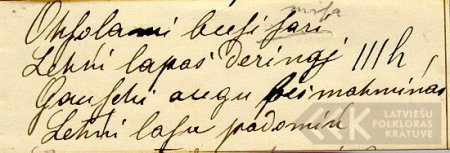 Ohſolami beeſi ſari
Lehni lapas
Gauſchi augu beſ mahminas
Lehni laſu padomiņ
LATVIEŠU
FOLKLORAS
KRĀTUVE